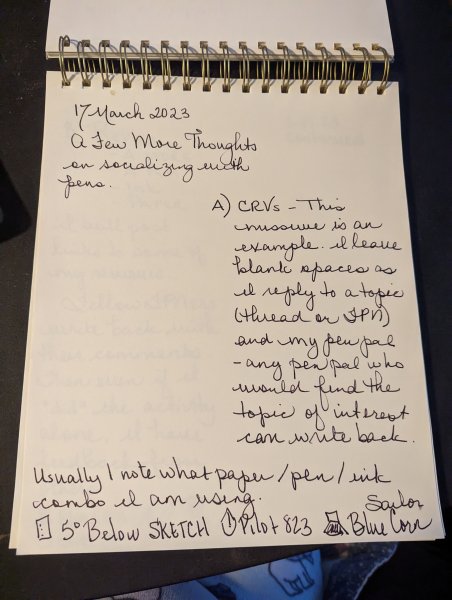 17 March 2023
A Few More Thoughts
on socializing with
pens.
A) CRVs - This
missive is an
example. I leave
blank spaces as
I reply to a topic
(thread or IPN)
and my pen pal
- any pen pal who
would find the
topic of interest
can write back.
Usually I note what paper/pen/ink
combo I am using.
5° Below SKETCH Pilot 823 Sailor
Blue Corn